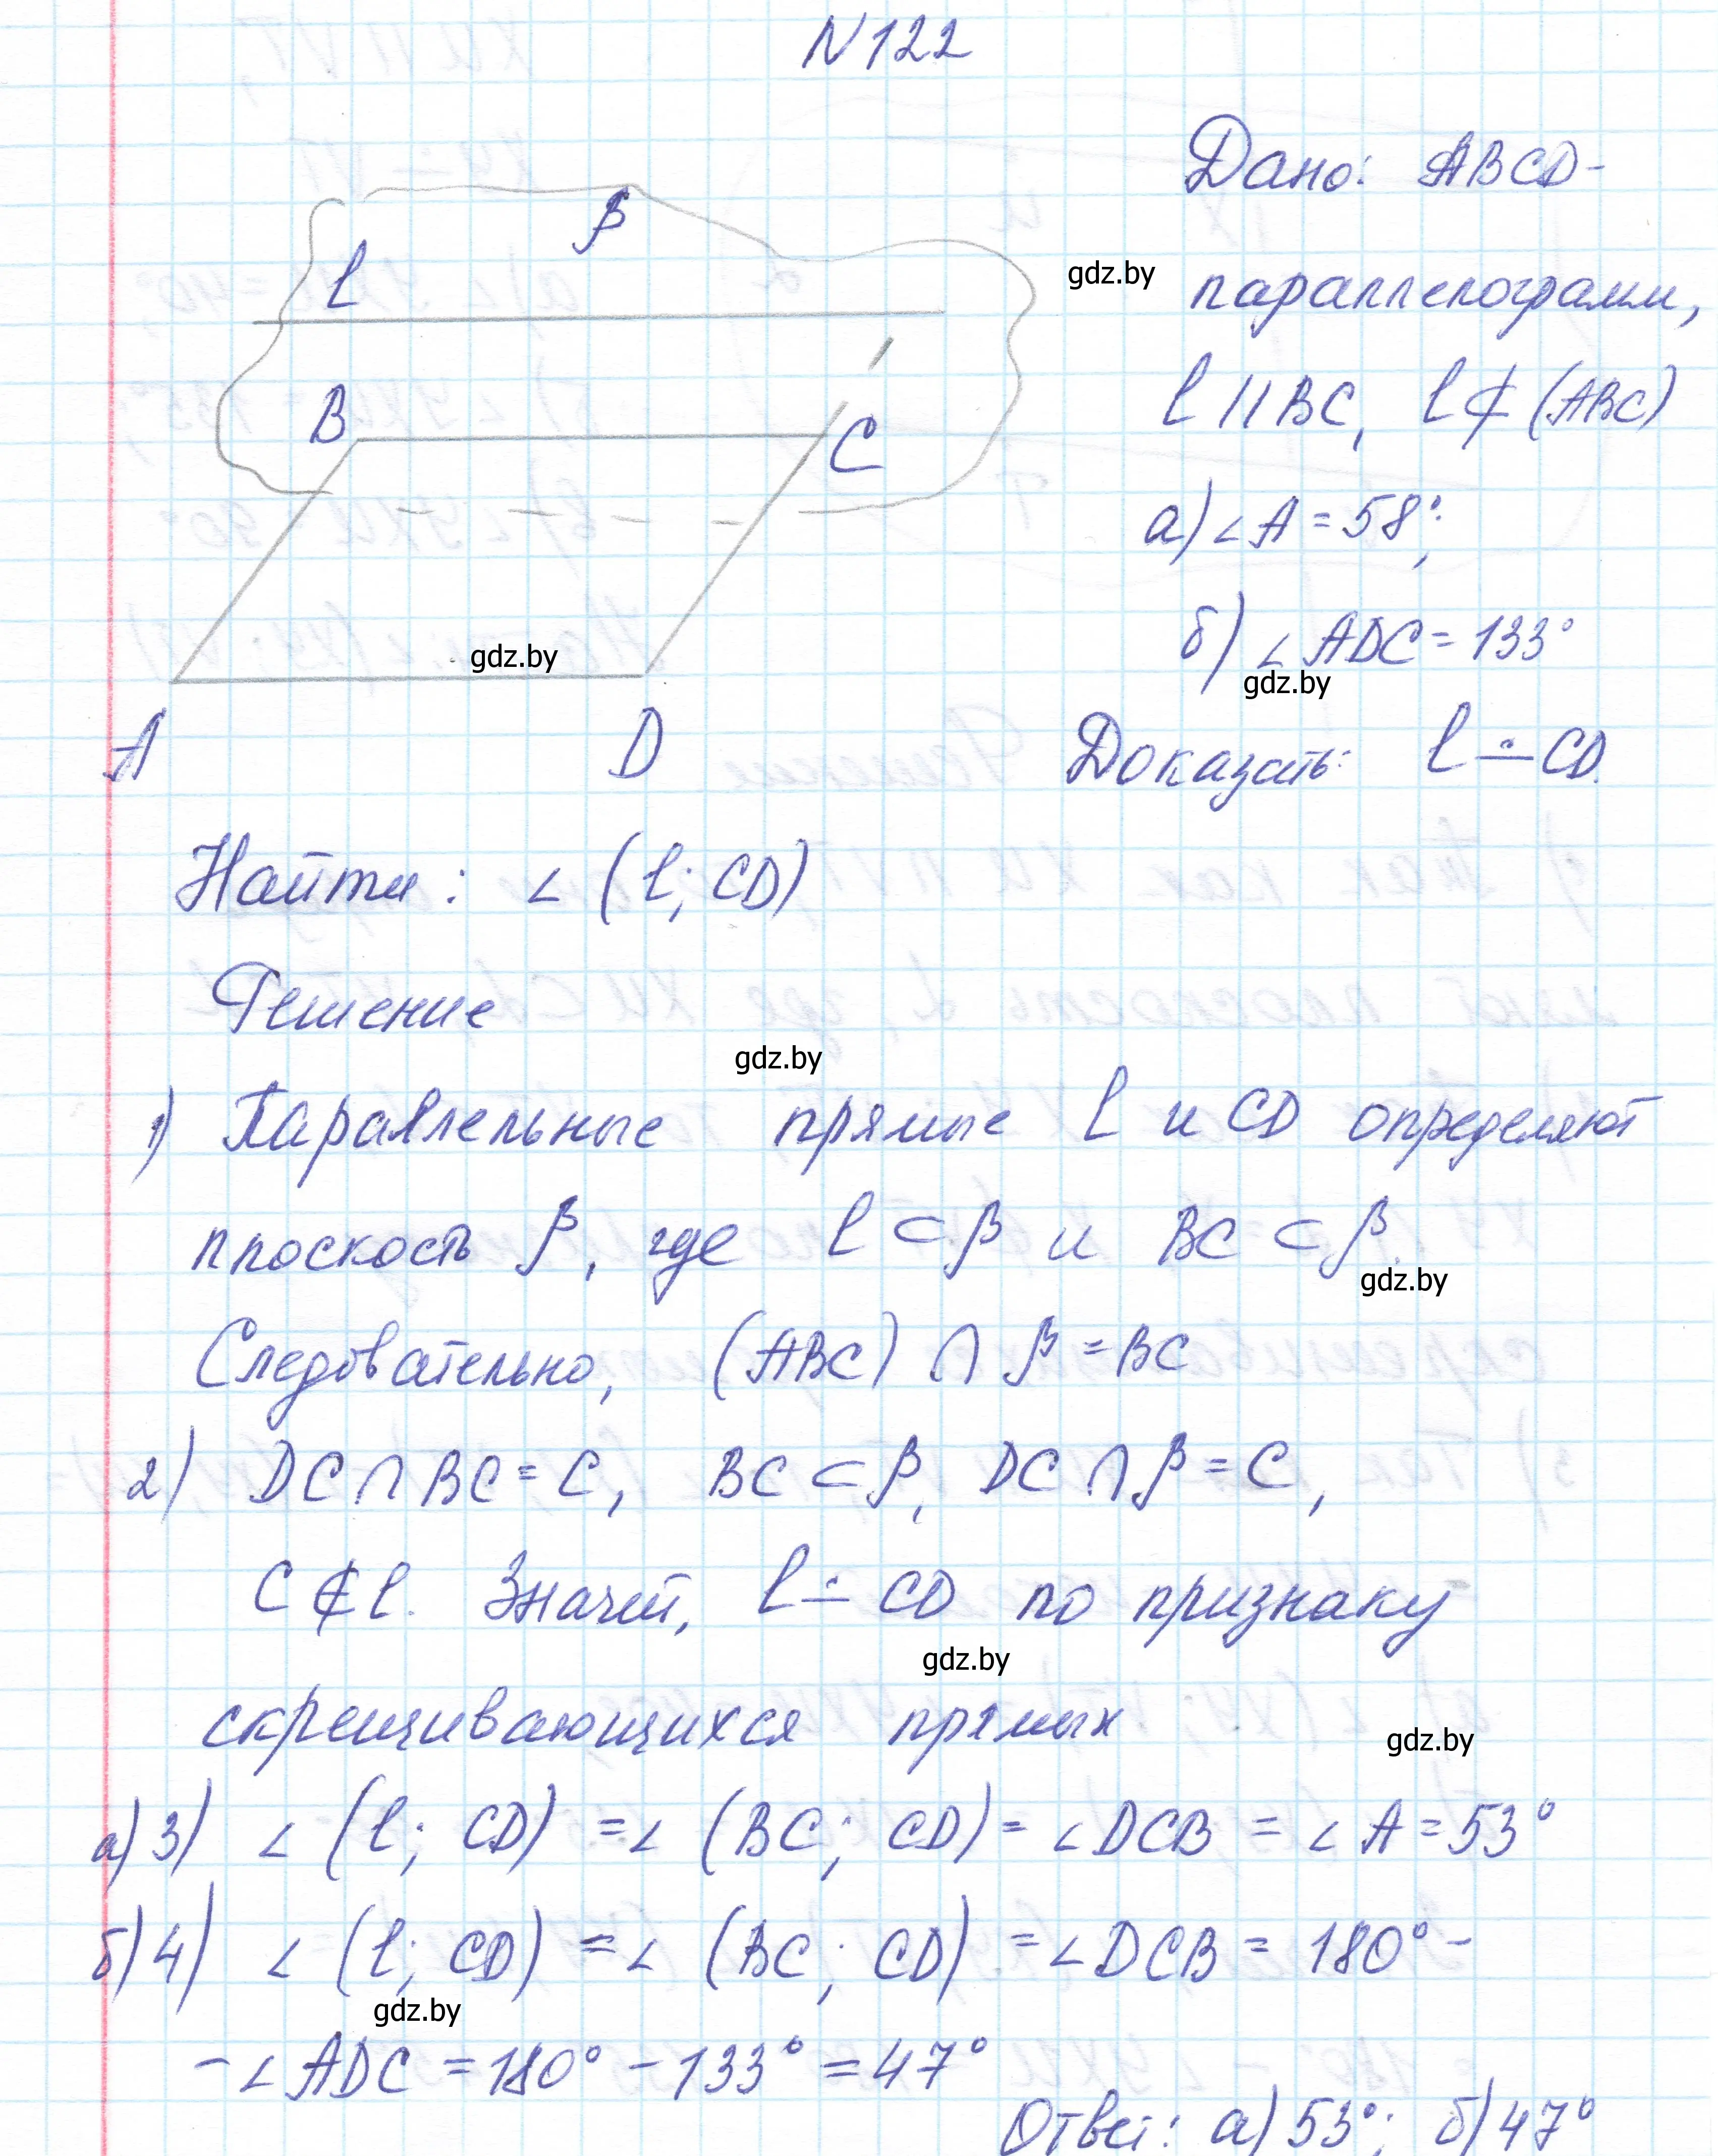 N122
Дано: ABCD-
β
gdz.by
l
параллелограмм,
l || BC, l ⊄ (ABC)
B
C
а) ∠A = 58°;
б) ∠ADC = 133°
gdz.by
gdz.by
A D
Доказать: l ∸ CD.
Найти: ∠ (l; CD)
Решение
gdz.by
1) Параллельные прямые l и CD определяют
плоскость β, где l ⊂ β и BC ⊂ β.
gdz.by
Следовательно, (ABC) ∩ β = BC
2) DC ∩ BC = C, BC ⊂ β, DC ∩ β = C,
C ⊄ l. Значит, l ∸ CD по признаку
gdz.by
скрещивающихся прямых
gdz.by
а) 3) ∠ (l; CD) = ∠ (BC; CD) = ∠DCB = ∠A = 53°
б) 4) ∠ (l; CD) = ∠ (BC; CD) = ∠DCB = 180° -
gdz.by
- ∠ADC = 180° - 133° = 47°
Ответ: а) 53°; б) 47°